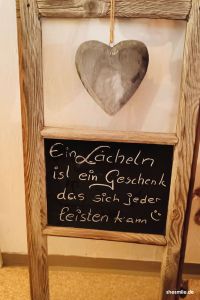 Ein Lächeln
ist ein Geschenk
das sich jeder
leisten kann
shesmile.de